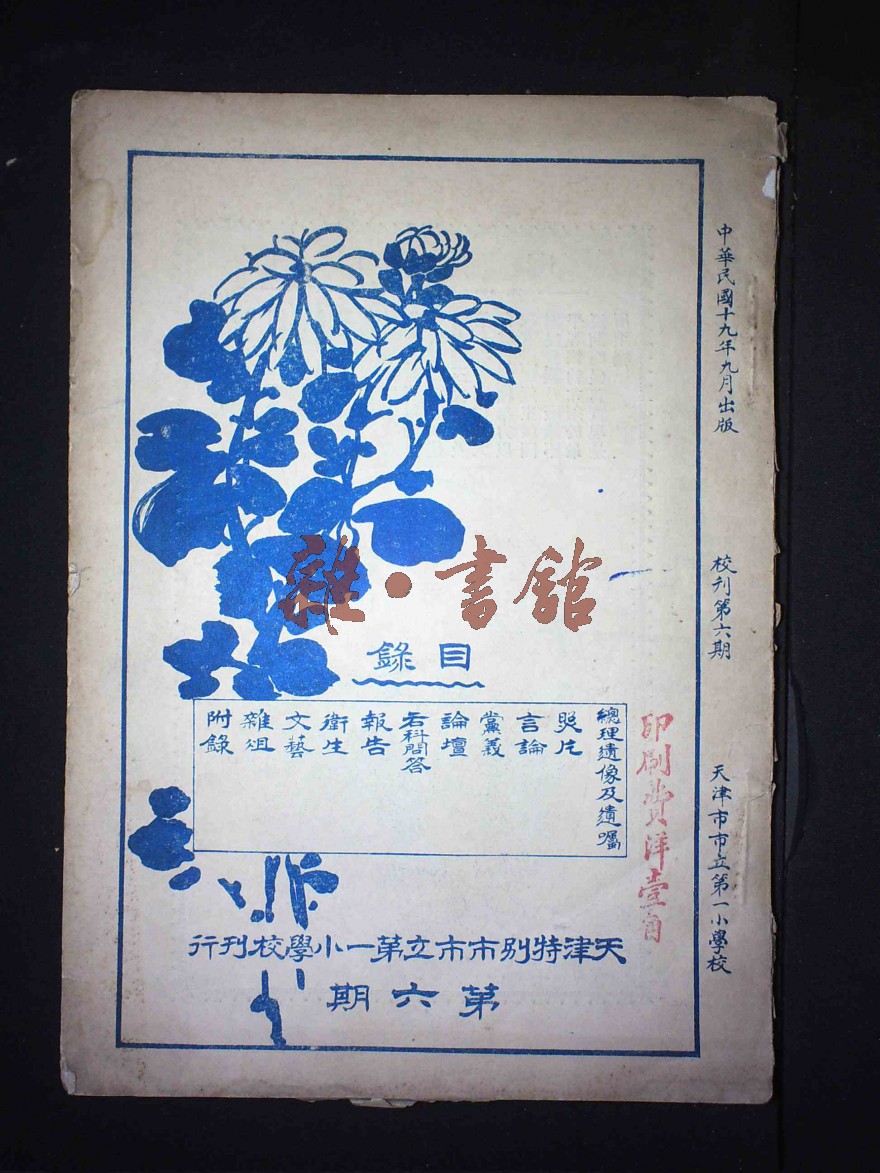 中華民國十九年九月出版
校刊第六期
天津市市立第一小學校
雜·書館
目錄
總理遺像及遺囑
照片
言論
黨義
論壇
各科問答
報告
衛生
文藝
雜俎
附錄
印刷費洋壹角
天津特別市市立第一小學校刊行
第六期